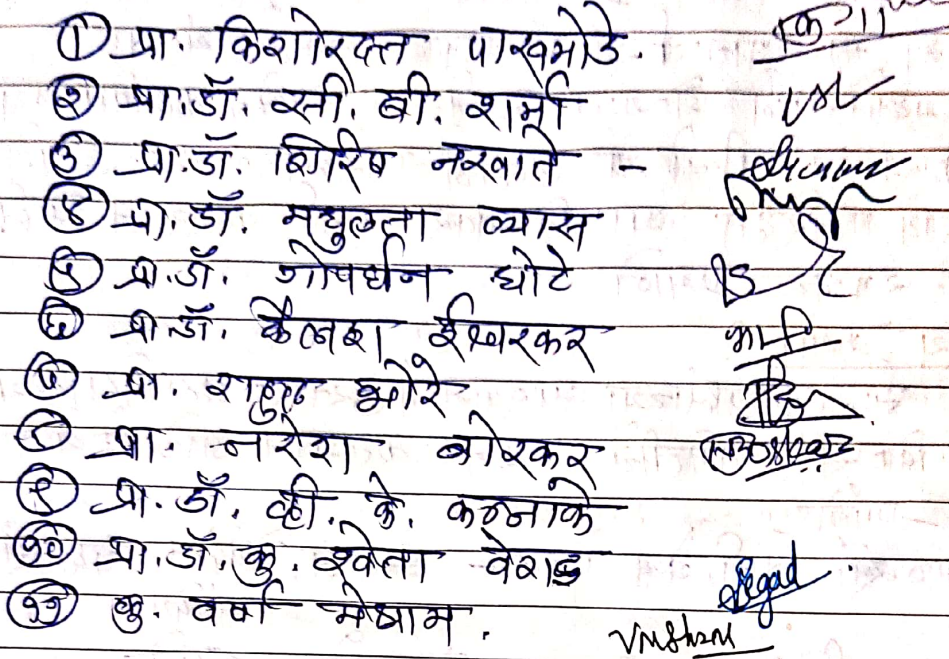 ① प्रा. किशोरदत्त पाखमोडे.
② प्रा.डॉ. सी. बी. शर्मा
③ प्रा.डॉ. शिरिष नखाते -
④ प्रा.डॉ. मधुलता व्यास
⑤ प्रा.डॉ. गोवर्धन घोटे
⑥ प्रा.डॉ. कैलाश ईश्वरकर
⑦ प्रा. राहुल भोरे
⑧ प्रा. नरेश बोरकर
⑨ प्रा.डॉ. व्ही. के. करनाके
⑩ प्रा.डॉ. कु. श्वेता वेगड
⑪ कु. वर्षा मेश्राम.